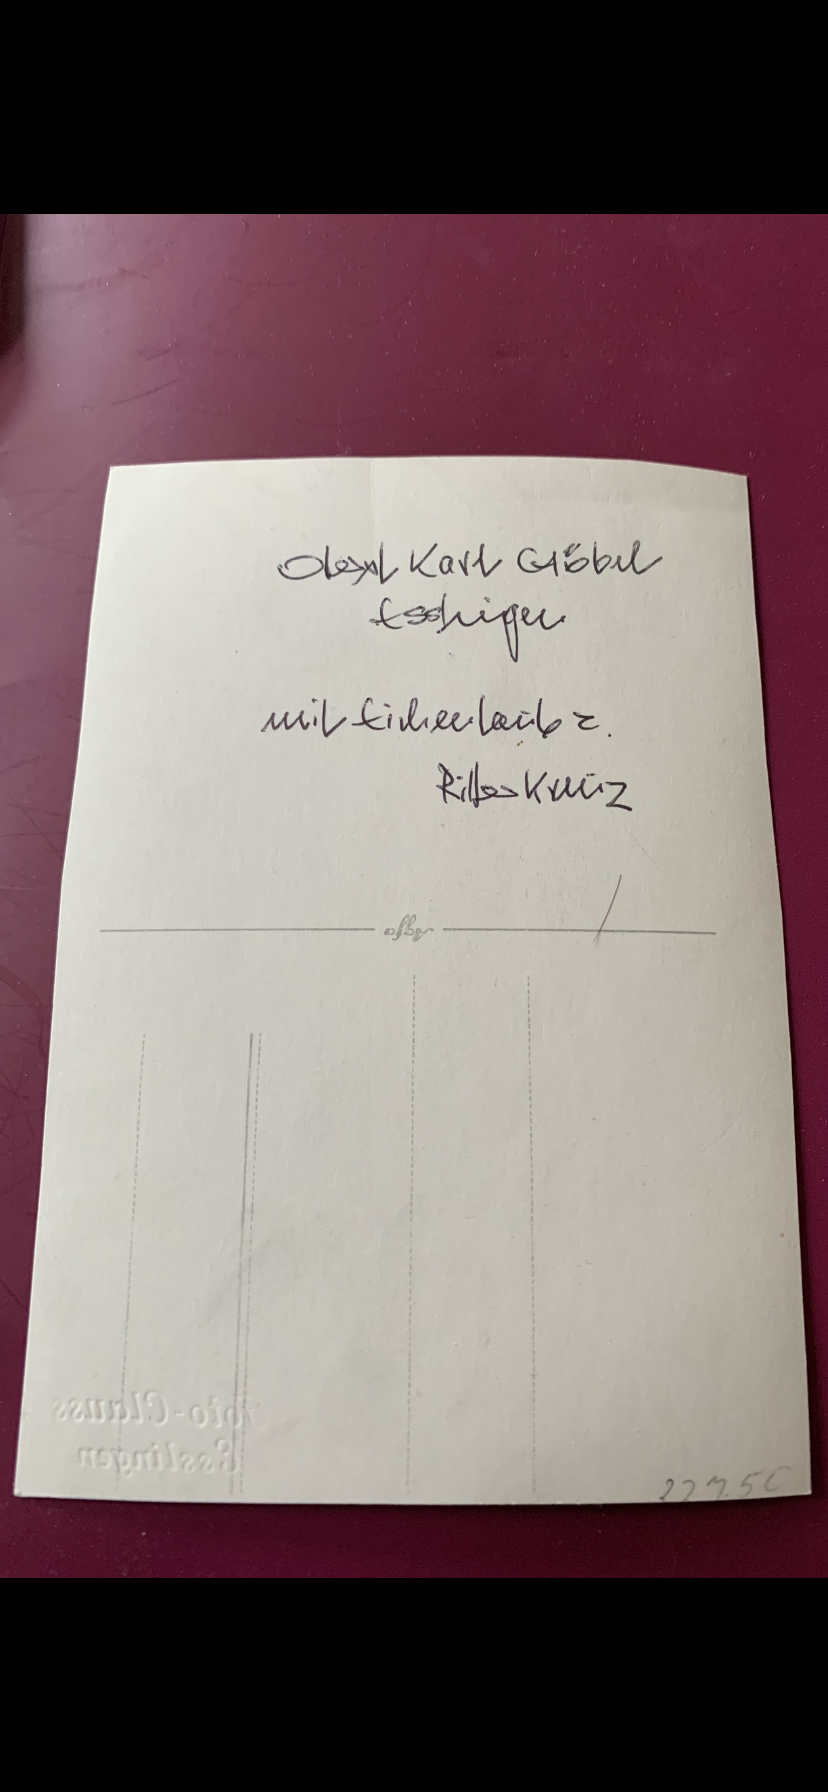 Oberst Karl Göbel
Esslingen
mit Eichenlaub z.
Ritterkreuz
agfa
Foto-Clauss
Esslingen